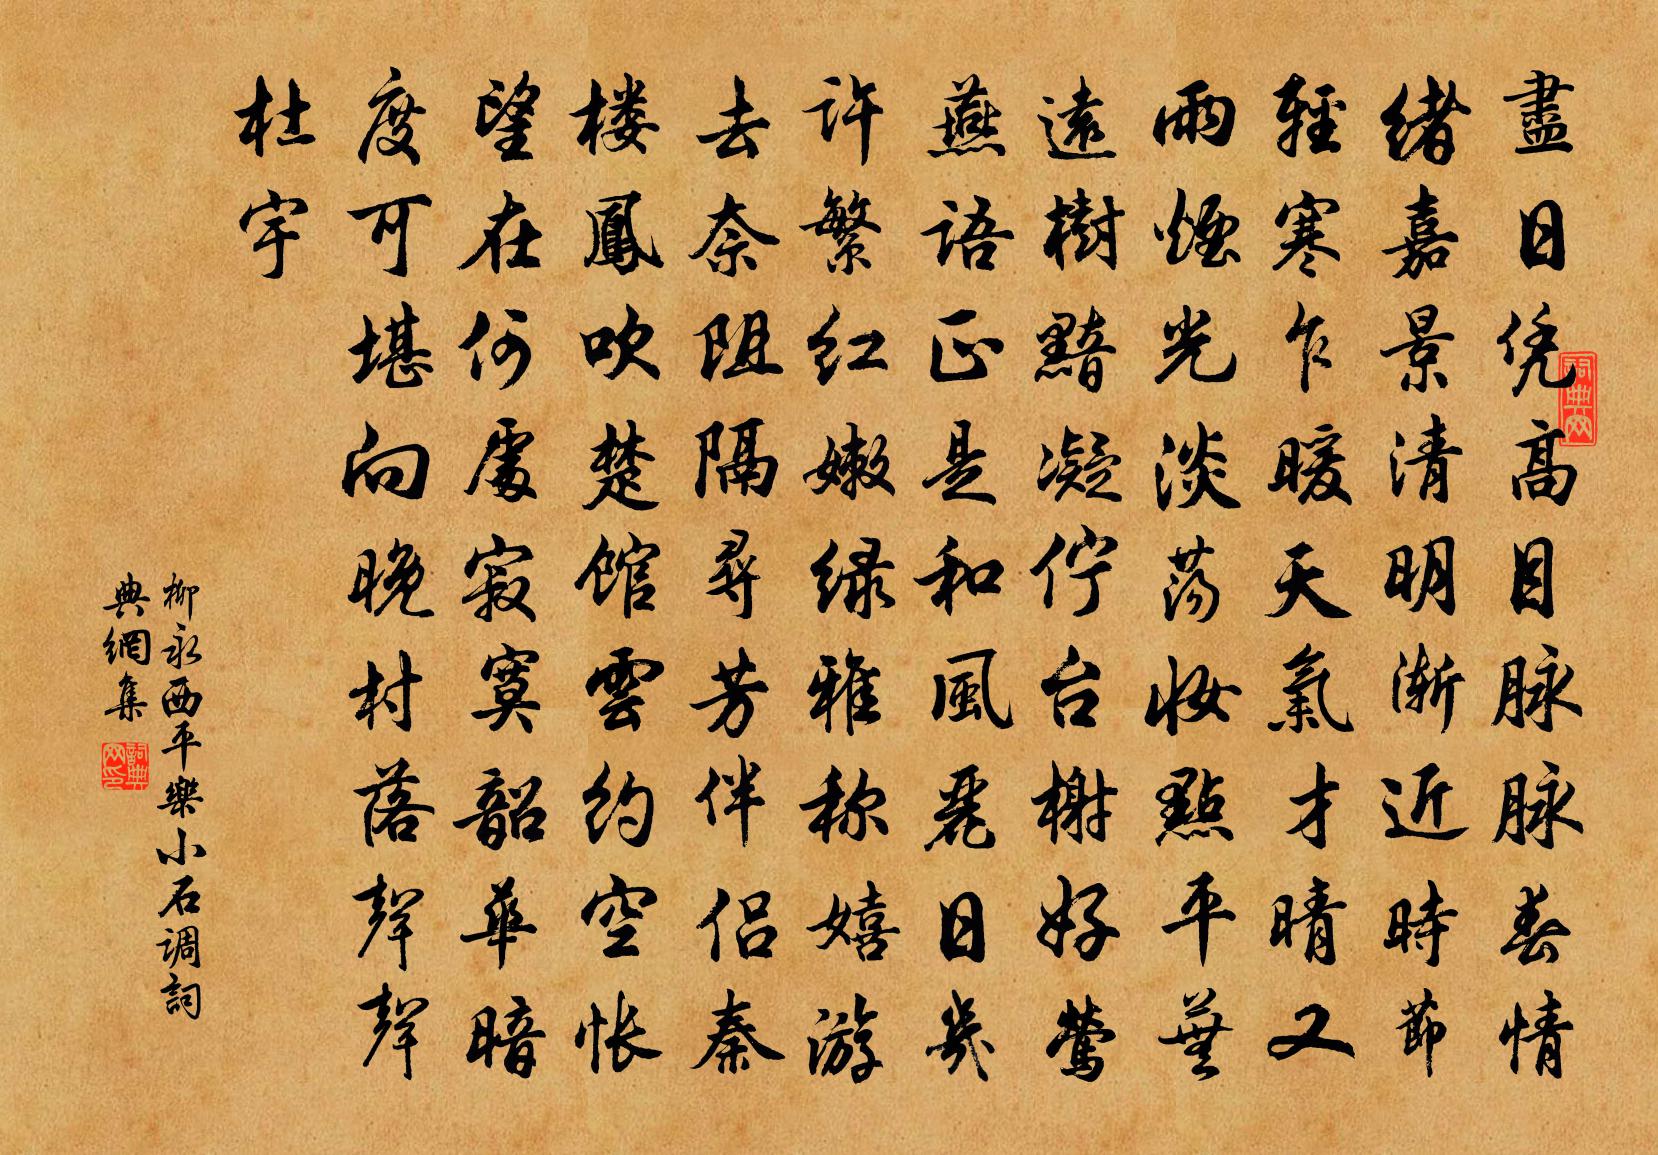 盡日凭高目脉脉春情
緒嘉景清明渐近時節
輕寒乍暖天氣才晴又
雨煙光淡荡妝點平蕪
遠樹黯凝佇台榭好鶯
燕語正是和風麗日幾
许繁红嫩绿雅称嬉游
去奈阻隔尋芳伴侣秦
楼鳳吹楚馆雲约空怅
望在何處寂寞韶華暗
度可堪向晚村落聲聲
杜宇
柳永西平樂小石调詞
典網集
词典网
詞典网印